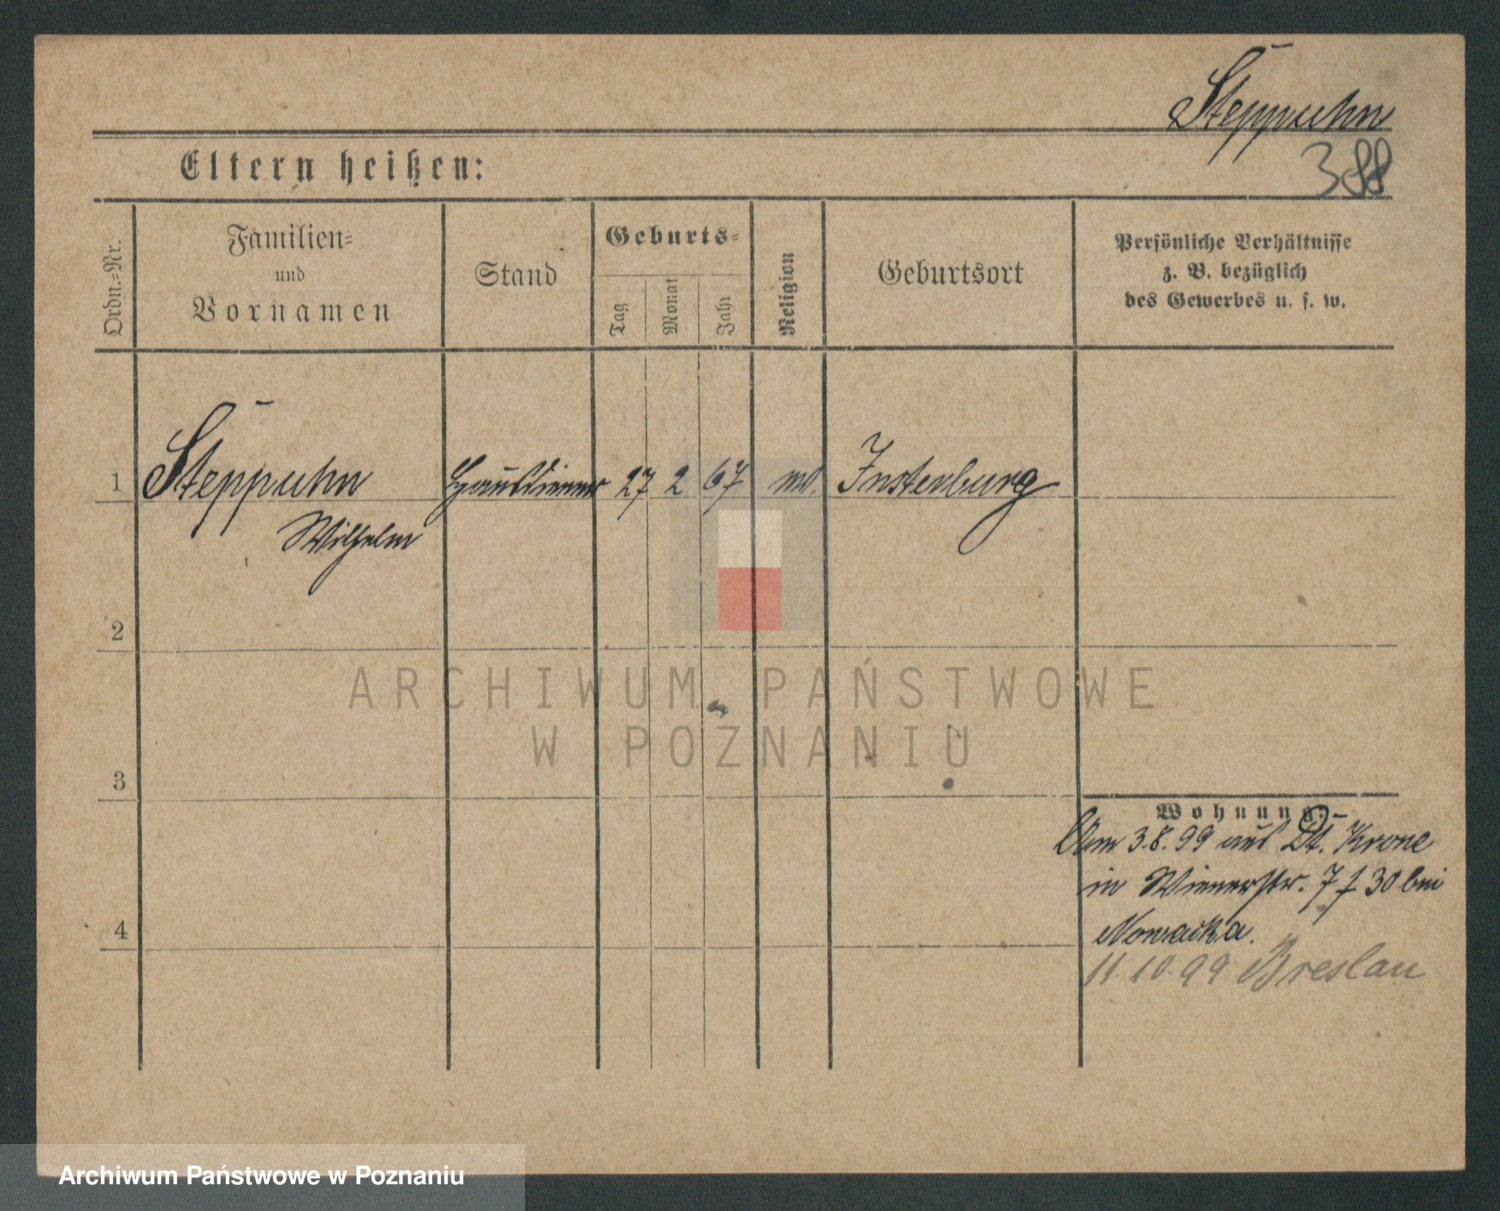 Steppuhn
388
Eltern heißen:
Ordn.=Nr.
Familien=
und
Vornamen
Stand
Geburts=
Tag
Monat
Jahr
Religion
Geburtsort
Persönliche Verhältnisse
z. B. bezüglich
des Gewerbes u. s. w.
1 Steppuhn Hausdiener 27 2 67 Insterburg
Wilhelm
2
3
4
Wohnung:
Am 3.8.99 aus Dt. Krone
in Wienerstr. 7 f 30 bei
Nowacka.
11.10.99 Breslau
ARCHIWUM PAŃSTWOWE
W POZNANIU
Archiwum Państwowe w Poznaniu